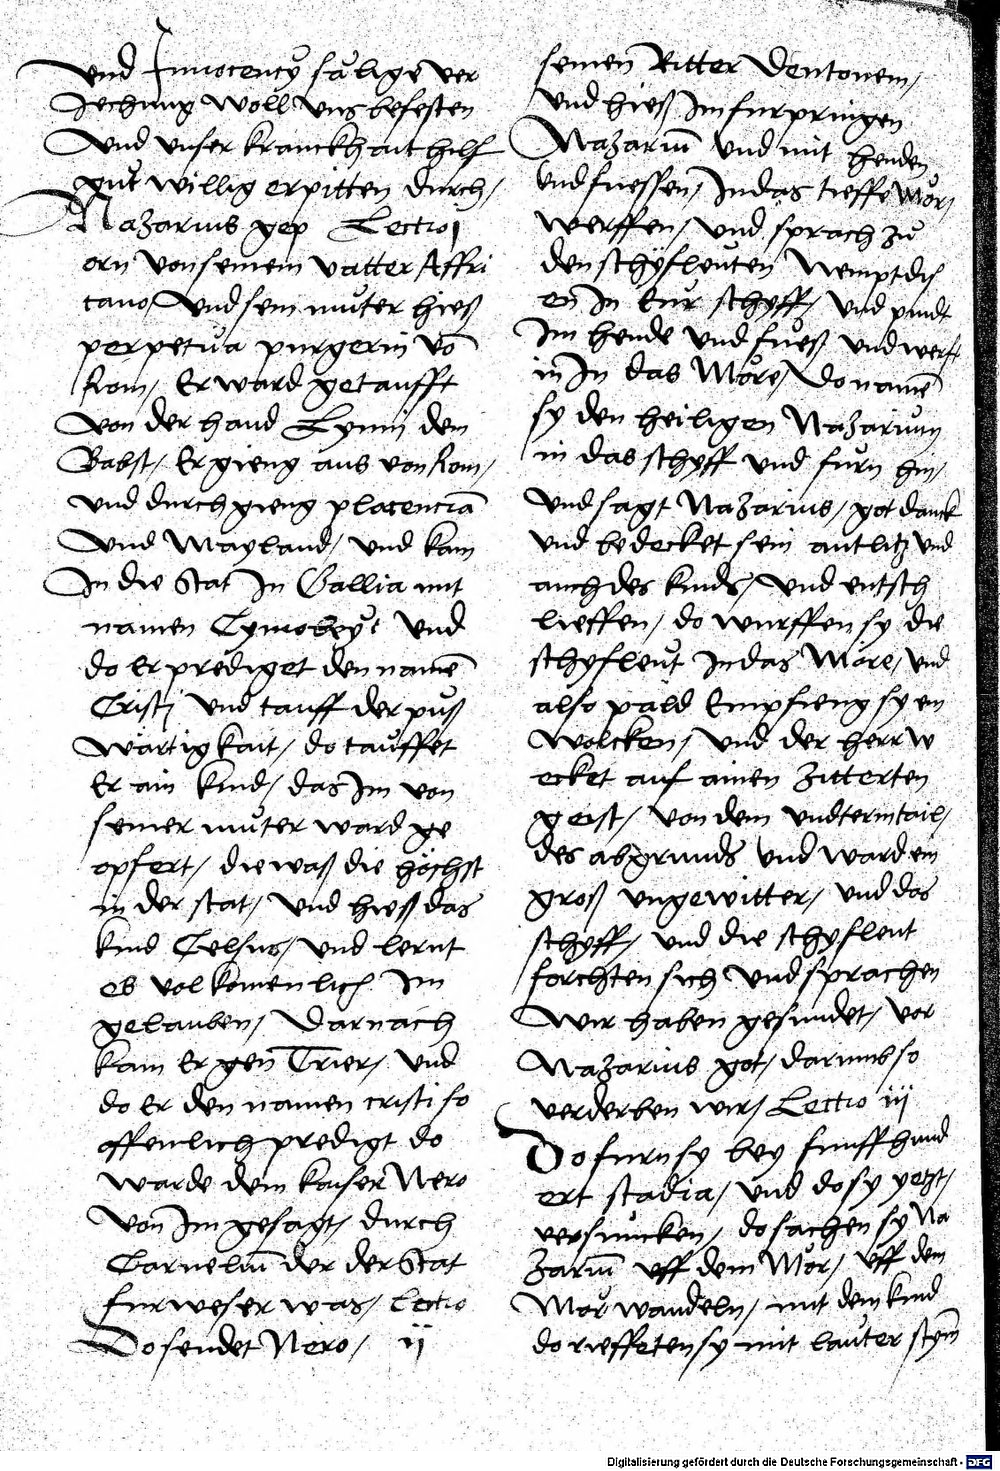 und Innocency sälige ver
Jechung woll uns befesten
und unser kranckhait hilf
gůt willig erpitten durch /
Nazarius gep Lectio j
orn von seinem vatter Affri
cano / und sein můter hieß
perpetůa purgerin vō
Rom / Er ward getaufft
von der hand Lynnj dem
Babst / Er gieng aus von Rom /
und durchgieng placenciā
und Mayland / und kam
In die Stat In Gallia mit
namen Cymobeyt und
do Er prediget den namē
Cristj und tauff der půß
wärtigkait / do tauffet
Er ain kind / das Im von
seiner můter ward ge
opfert / die waß die höchst
in der stat / und hieß das
kind Celsus / und lernt
es volkomenlich Im
gelauben / Darnach
kam Er gen Trier / und
do Er den namen cristi so
offenlich predigt do
warde dem kaiser Nero
von Im gesagt / durch
Corneliū der der Stat
furweser was / Lectio
Do sendet Nero / ij
seinen Ritter Dentonem /
und hieß Im furpringen
Nazariū und mit henden
und fuessen / In das tieffe Mör /
werffen / und sprach zů
den schÿfleuten Nempt dis
en In Eur schyff / und pindt
Im hende und fueß und werft
in In das Möre / Do namē
sy den heiligen Nazarium
in das schyff und furn hin /
und sagt Nazarius / got danck
und bedecket sein antlitz und
auch des kinds / und entsch
lieffen / do wurffen sy die
schyfleut In das More / und
also pald Empfieng sy en
wolcken / und der herr w
ecket auf ainen zitterten
geist / von dem undterntail /
des abgrunds und ward ein
groß ungewitter / und das
schyff / und die schyfleut
forchten sich und sprachen
Wir haben gesundet / vor
Nazarius got / darumb so
verderben wir / Lectio iij
Do furn sy bey funff hund
ert stadia / und do sy yetzt /
versuncken / do sachen sy Na
zariū uff dem Mör / uff dem
Mör wandeln / mit dem kind
do rieffeten sy mit lauter stym̄
Digitalisierung gefördert durch die Deutsche Forschungsgemeinschaft - DFG